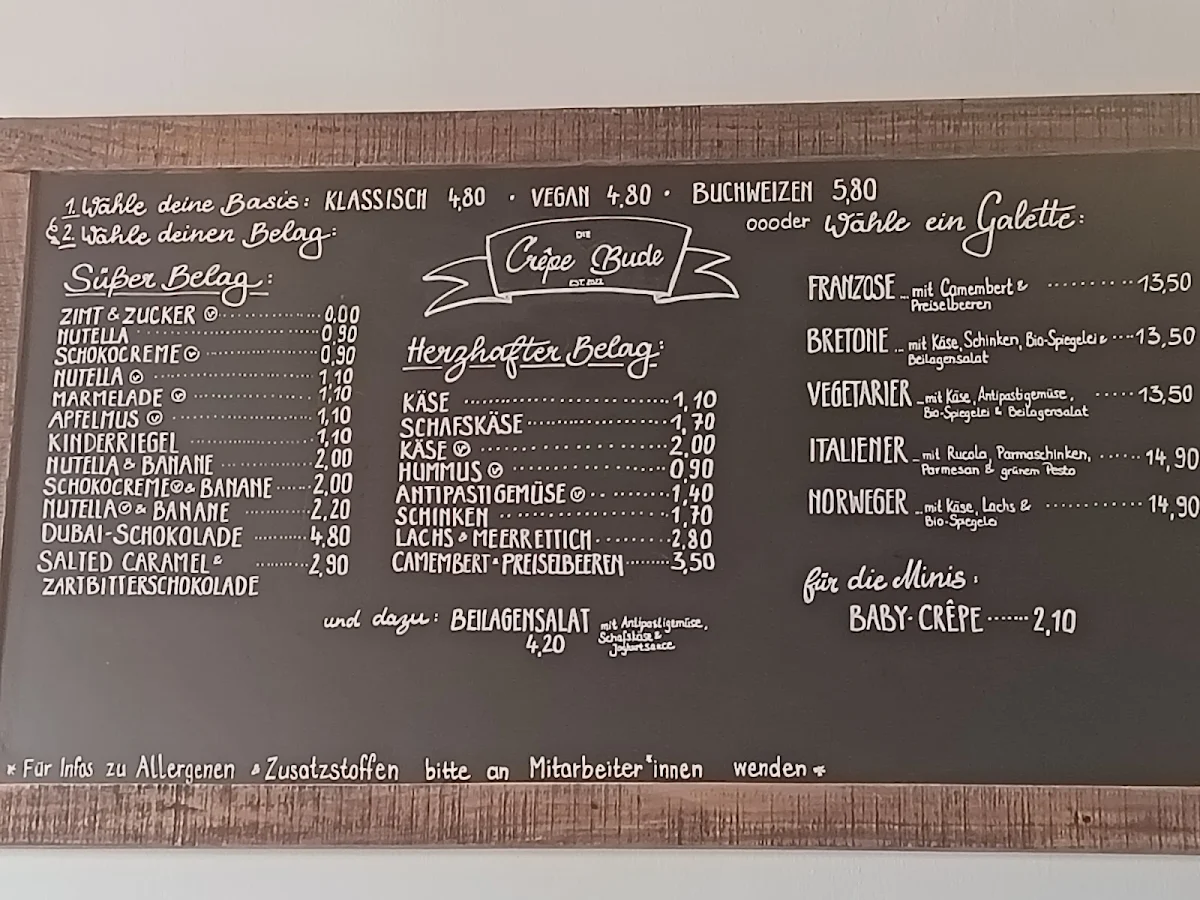 1. Wähle deine Basis: KLASSISCH 4,80 · VEGAN 4,80 · BUCHWEIZEN 5,80
& 2. Wähle deinen Belag:
oooder Wähle ein Galette:
DIE
Crêpe Bude
Süßer Belag:
ZIMT & ZUCKER Ⓥ 0,00
NUTELLA 0,90
SCHOKOCREME Ⓥ 0,90
NUTELLA Ⓥ 1,10
MARMELADE Ⓥ 1,10
APFELMUS Ⓥ 1,10
KINDERRIEGEL 1,10
NUTELLA & BANANE 2,00
SCHOKOCREME Ⓥ & BANANE 2,00
NUTELLA Ⓥ & BANANE 2,20
DUBAI-SCHOKOLADE 4,80
SALTED CARAMEL & 2,90
ZARTBITTERSCHOKOLADE
Herzhafter Belag:
KÄSE 1,10
SCHAFSKÄSE 1,70
KÄSE Ⓥ 2,00
HUMMUS Ⓥ 0,90
ANTIPASTIGEMÜSE Ⓥ 1,40
SCHINKEN 1,70
LACHS & MEERRETTICH 2,80
CAMEMBERT & PREISELBEEREN 3,50
und dazu: BEILAGENSALAT mit Antipastigemüse,
4,20 Schafskäse &
Joghurtsauce
FRANZOSE ... mit Camembert & 13,50
Preiselbeeren
BRETONE ... mit Käse, Schinken, Bio-Spiegelei & 13,50
Beilagensalat
VEGETARIER ... mit Käse, Antipastigemüse, 13,50
Bio-Spiegelei & Beilagensalat
ITALIENER ... mit Rucola, Parmaschinken, 14,90
Parmesan & grünem Pesto
NORWEGER ... mit Käse, Lachs & 14,90
Bio-Spiegelei
für die Minis:
BABY-CRÊPE 2,10
* Für Infos zu Allergenen & Zusatzstoffen bitte an Mitarbeiter*innen wenden *